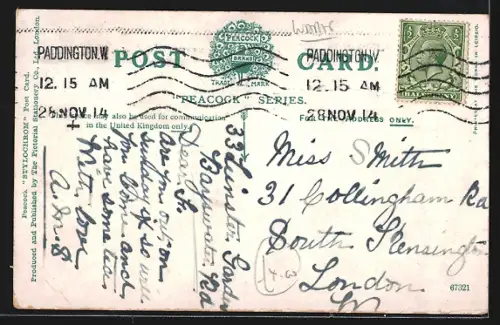 PADDINGTON.W.
12. 15 AM
28 NOV 14
POST
PEACOCK
BRAND
TRADE MARK
CARD.
PADDINGTON.W.
12. 15 AM
28 NOV 14
HALFPENNY
"PEACOCK" SERIES.
may also be used for communication
in the United Kingdom only.
FOR ADDRESS ONLY.
Peacock "STYLOCHROM" Post Card.
Produced and Published by The Pictorial Stationery Co., Ltd., London.
33 Leinster Gardens
Bayswater Rd
Dear
Are you in on
Sunday if so will
you come and
have some tea
With love
Miss Smith
31 Collingham Rd
South Kensington
London
67321